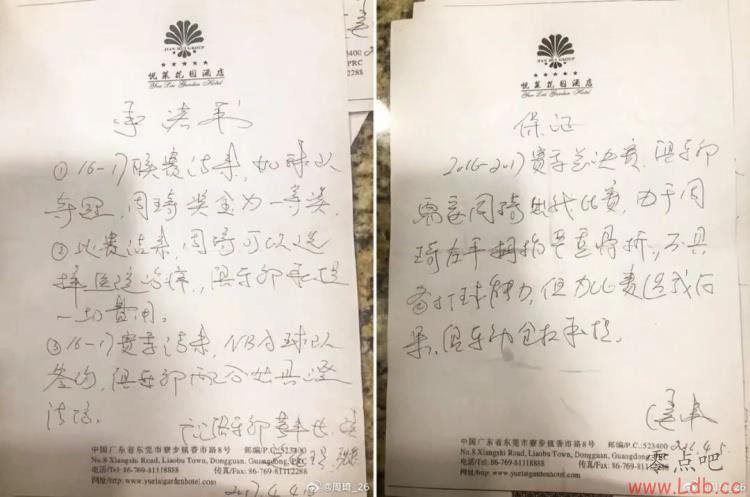 JIAN HUI GROUP
★ ★ ★ ★ ★
悦莱花园酒店
Yue Lai Garden Hotel
承诺书
① 16-17联赛结束,如球队
夺冠,周琦奖金为一等奖.
②比赛结束,周琦可以选
择医院治疗,俱乐部承担
一切费用。
③16-17赛季结束,NBA球队
签约,俱乐部配合出具澄
清信.
中国广东省东莞市寮步镇香市路8号 邮编/P.C.:523400
No.8 Xiangshi Road, Liaobu Town, Dongguan, Guangdong, PRC
电话/Tel: 86-769-81118888 传真/Fax: 86-769-81112288
www.yuelaigardenhotel.com
2017.4.
@周琦_26
523400
PRC
2288
JIAN HUI GROUP
★ ★ ★ ★ ★
悦莱花园酒店
Yue Lai Garden Hotel
保证
2016-2017赛季总决赛,俱乐部
需要周琦出战比赛,由于周
琦左手拇指严重骨折,不具
备打球能力,但为比赛造成后
果,俱乐部全权承担。
中国广东省东莞市寮步镇香市路8号 邮编/P.C.:523400
No.8 Xiangshi Road, Liaobu Town, Dongguan, Guangdong, PRC
电话/Tel: 86-769-81118888 传真/Fax: 86-769-81112288
www.yuelaigardenhotel.com
零点吧
www.Ldb.cc